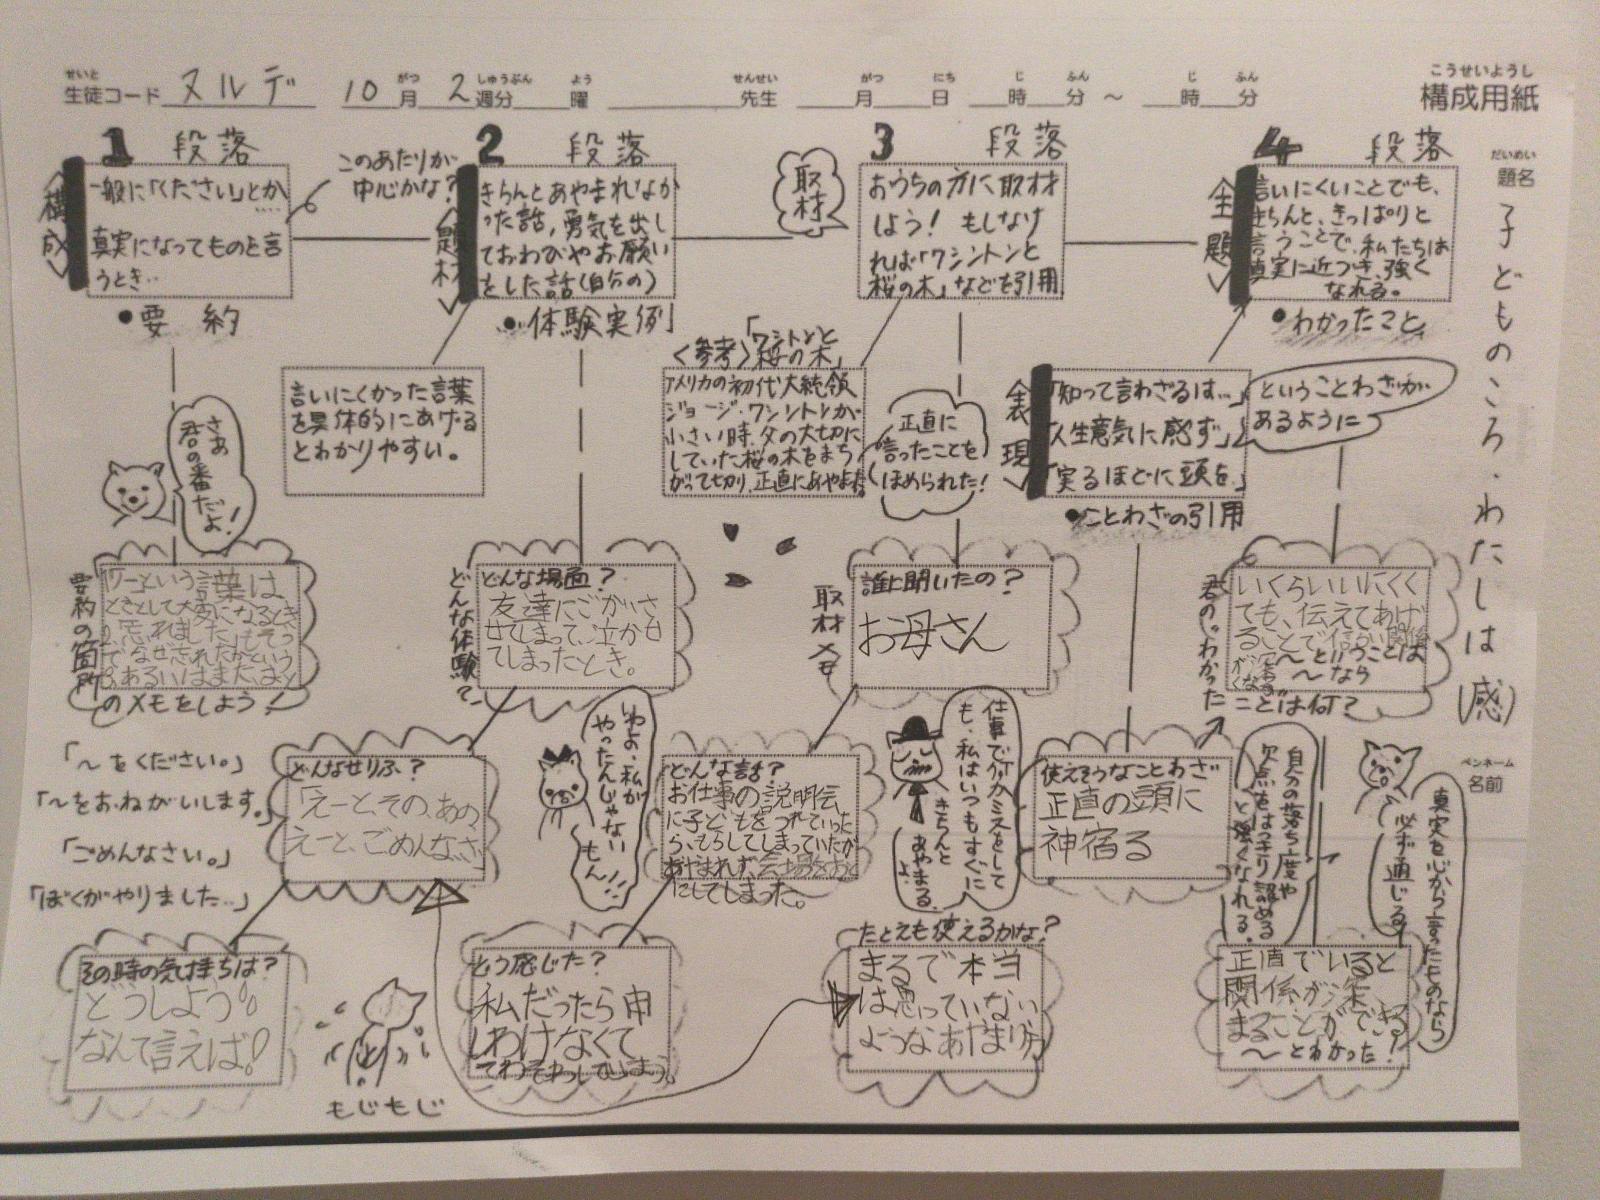 せいと
生徒コード ヌルデ 10月 2週分 曜 先生 月 日 時 分 ～ 時 分
がつ しゅうぶん よう せんせい がつ にち じ ふん じ ふん
こうせいようし
構成用紙
だいめい
題名
子どものころ・わたしは(感)
ペンネーム
名前
1 段落
<構成>
一般に「ください」とか、…
真実になってものを言
うとき…
●要約
このあたりが
中心かな？
2 段落
<題材>
きちんとあやまれなか
った話，勇気を出し
ておわびやお願い
をした話(自分の)
●体験実例
言いにくかった言葉
を具体的にあげる
とわかりやすい。
3 段落
取材
おうちの方に取材
しよう！ もしなけ
れば「ワシントンと
桜の木」などを引用
<参考>「ワシントンと
桜の木」
アメリカの初代大統領
ジョージ・ワシントンが
小さい時、父の大切に
していた桜の木をまち
がって切り、正直にあやまった
正直に
言ったことを
ほめられた！
4 段落
<主題>
言いにくいことでも、
きちんと、きっぱりと
言うことで、私たちは
真実に近づき、強く
なれる。
●わかったこと
<表現>
「知って言わざるは…」
「人生意気に感ず」
「実るほどに頭を」
●ことわざの引用
ということわざが
あるように
さあ
君の番だよ！
要約の箇所
のメモをしよう！
言葉は
「～をください。」
「～をおねがいします。」
「ごめんなさい。」
「ぼくがやりました…」
その時の気持ちは？
どうしよう
なんて言えば！
もじもじ
どんな体験？
どんな場面？
友達にごかいさ
せてしまって、泣かせ
てしまったとき。
どんなせりふ？
「えーと、その、あの、
えーと、ごめんなさ
いやよ、私が
やったんじゃない
もん！！
取材メモ
誰に聞いたの？
お母さん
どんな話？
お仕事の説明会
に子どもをつれていった
ら、そらしてしまっていたが
あやまれず、
にしてしまった。
どう感じた？
私だったら申
しわけなくて
てしまう。
仕事で何かミスをして
も、私はいつもすぐに
きちんと
あやまるよ。
たとえも使えるかな？
まるで本当
は思っていない
ようなあやまり方
君の“わかった”
ことは何？
いくらいいにくく
ても、伝えてあげ
ることで信らい関係
～ということは
～なら
使えそうなことわざ
正直の頭に
神宿る
自分の落ち度や
欠点をはっきり認める
と強くなれる。
真実を心から言ったものなら
必ず通じる。
正直でいると
関係が深
まることができる
～とわかった！